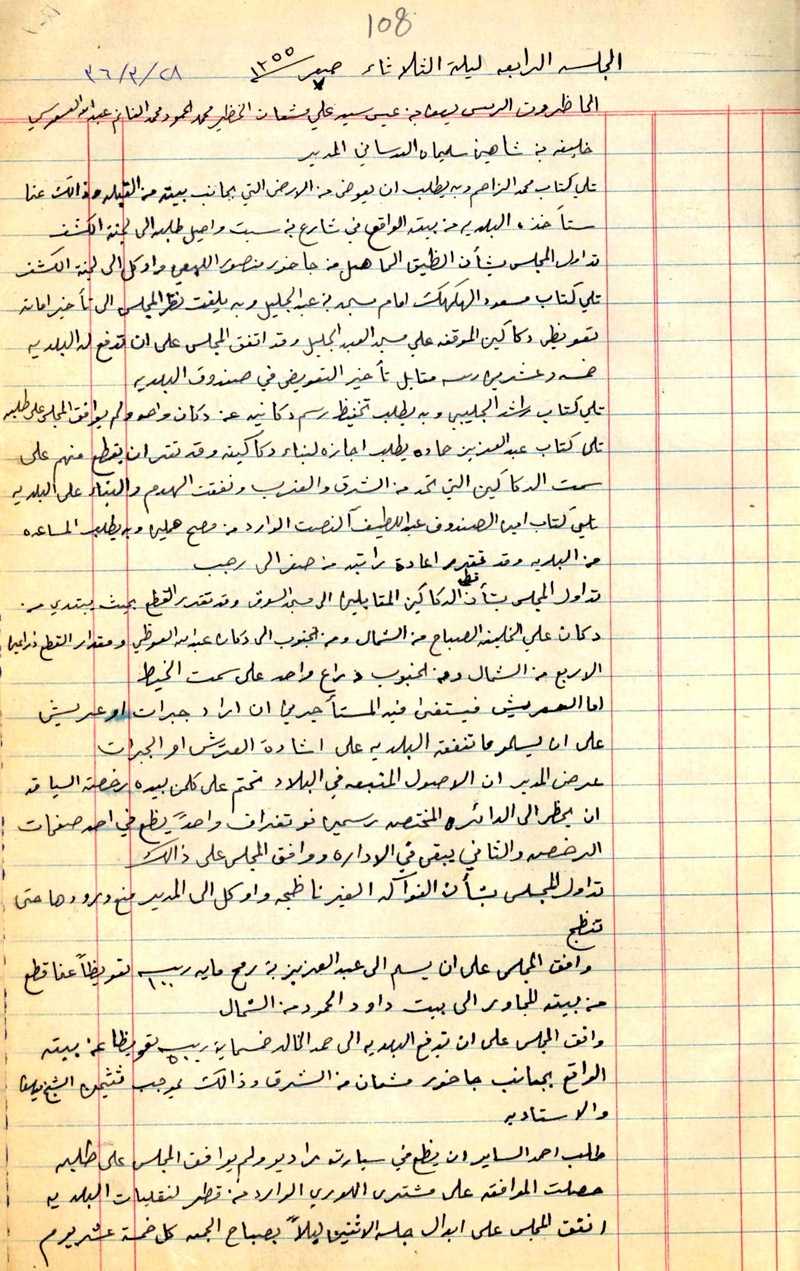 108
الجلسه الرابعه ليلة الثلاثاء صفر ١٣٥٥ ٢٨/٣/٣٦
الحاظرون الريس بن عيسى سيد علي مشعان الخظير محمد الحمود محمد الغانم عبدالله العسعوسي
خليفه بن شاهين سليمان العدساني المدير
تلي كتاب محمد المزاحم وبه يطلب ان يعوض من الارض التي بجانب بيته من القبله وذالك عنا
ستأخذه البلديه من بيته الواقع في شارع بن سبت واحيل طلبه الى لجنة الكشف
تداول المجلس بشأن الطيق من جاخور منصور واوكل الى لجنة الكشف
تلي كتاب مسعود الهكهك امام مسجد بن عبدالجليل وبه يلفت نظر المجلس الى تأخير
تعويظ دكاكين الموقفه على مسجد العبدالجليل وقد اتفق المجلس على ان تدفع له البلديه
خمسه وعشرين ربيه مقابل تأخير التعويض في صندوق البلديه
تلي كتاب راشد الجليبي وبه يطلب تخفيظ رسم دكانيه عن دكان واحد ولم يوافق المجلس على طلبه
تلي كتاب عبدالعزيز حاده يطلب اجازه لبناء دكاكينه وقد تقرر ان يقطع منهم على
سمت الدكاكين التي تحد من الشرق والغرب ونفقت الهدم والبناء على البلديه
تلي كتاب امين الصندوف عبداللطيف النصف الوارد من وبه يطلب المساعده
من البلديه وقد تقرر اعادة راتبه من صفر الى رجب
تداول المجلس بشأن قطع الدكاكين المقابلين الى مسجد السوق وقد تقرر القطع بحيث يبتدي من
دكان علي الخليفه الصباح من الشمال ومن الجنوب الى دكان عبدالله العوظي ومقدار القطع ذراعين
الاربع من الشمال ومن الجنوب ذراع واحد على سمت الخيط
اما العريش فيستفتا فيه المستأجرين ان اراد جبرات او عريش
على ان يسلمو ما تنفقه البلديه على اشادة العرش او الجبرات
عرض المدير ان الاصول المتبعه في البلاد تحتم على كلمن بيده رخصة السياقه
ان يحظر الى الدائره المختصه رسمين فوتغراف واحدً يظع في احد صفحات
الرخصه والثاني يبقى في الاداره ووافق المجلس على ذالك
تداول المجلس بشأن الفواكه الغير ناظجه واوكل الى المدير منع ورودها حتى
تنظج
وافق المجلس على ان يسلم الى عبدالعزيز بن رمح مايه ربيه ١٠٠ تعويظاً عنا قطع
من بيته المجاور الى بيت داود الحمود من الشمال
وافق المجلس على ان تدفع البلديه الى حمد الخالد خمسماية ربيه ٥٠٠ تعويظا عن بيته
الواقع بجانب جاخور مشعان من الشرق وذالك بموجب تثمين الشيخ
والاستاديه
طلب احمد الساير ان يظع في سيارته راديو ولم يوافق المجلس على طلبه
حصلت الموافقه على مشترى اللوري الوارد من قطر لنقليات البلديه
اتفق المجلس على ابدال جلسة الاثنين ليلاً بصباح الجمعه كل خمسة عشر يوم